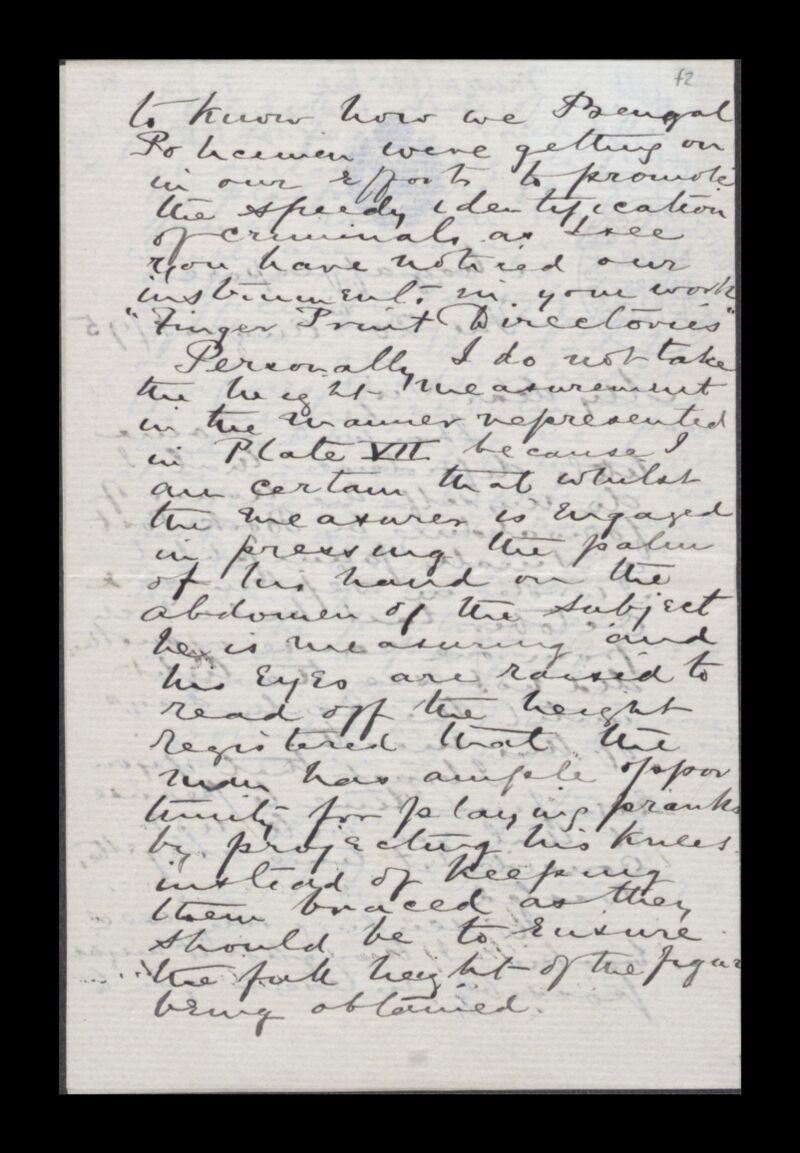 f2
to know how we Bengal
Policemen were getting on
in our efforts to promote
the speedy identification
of criminals, as I see
you have noticed our
instruments in your work
"Finger Print Directories"
Personally I do not take
the height measurement
in the manner represented
in Plate VII because I
am certain that whilst
the measurer is engaged
in pressing the palm
of his hand on the
abdomen of the subject
he is measuring and
his eyes are raised to
read off the height
registered that the
man has ample oppor
tunity for playing pranks
by projecting his knees
instead of keeping
them braced as they
should be to ensure
the full height of the figure
being obtained.